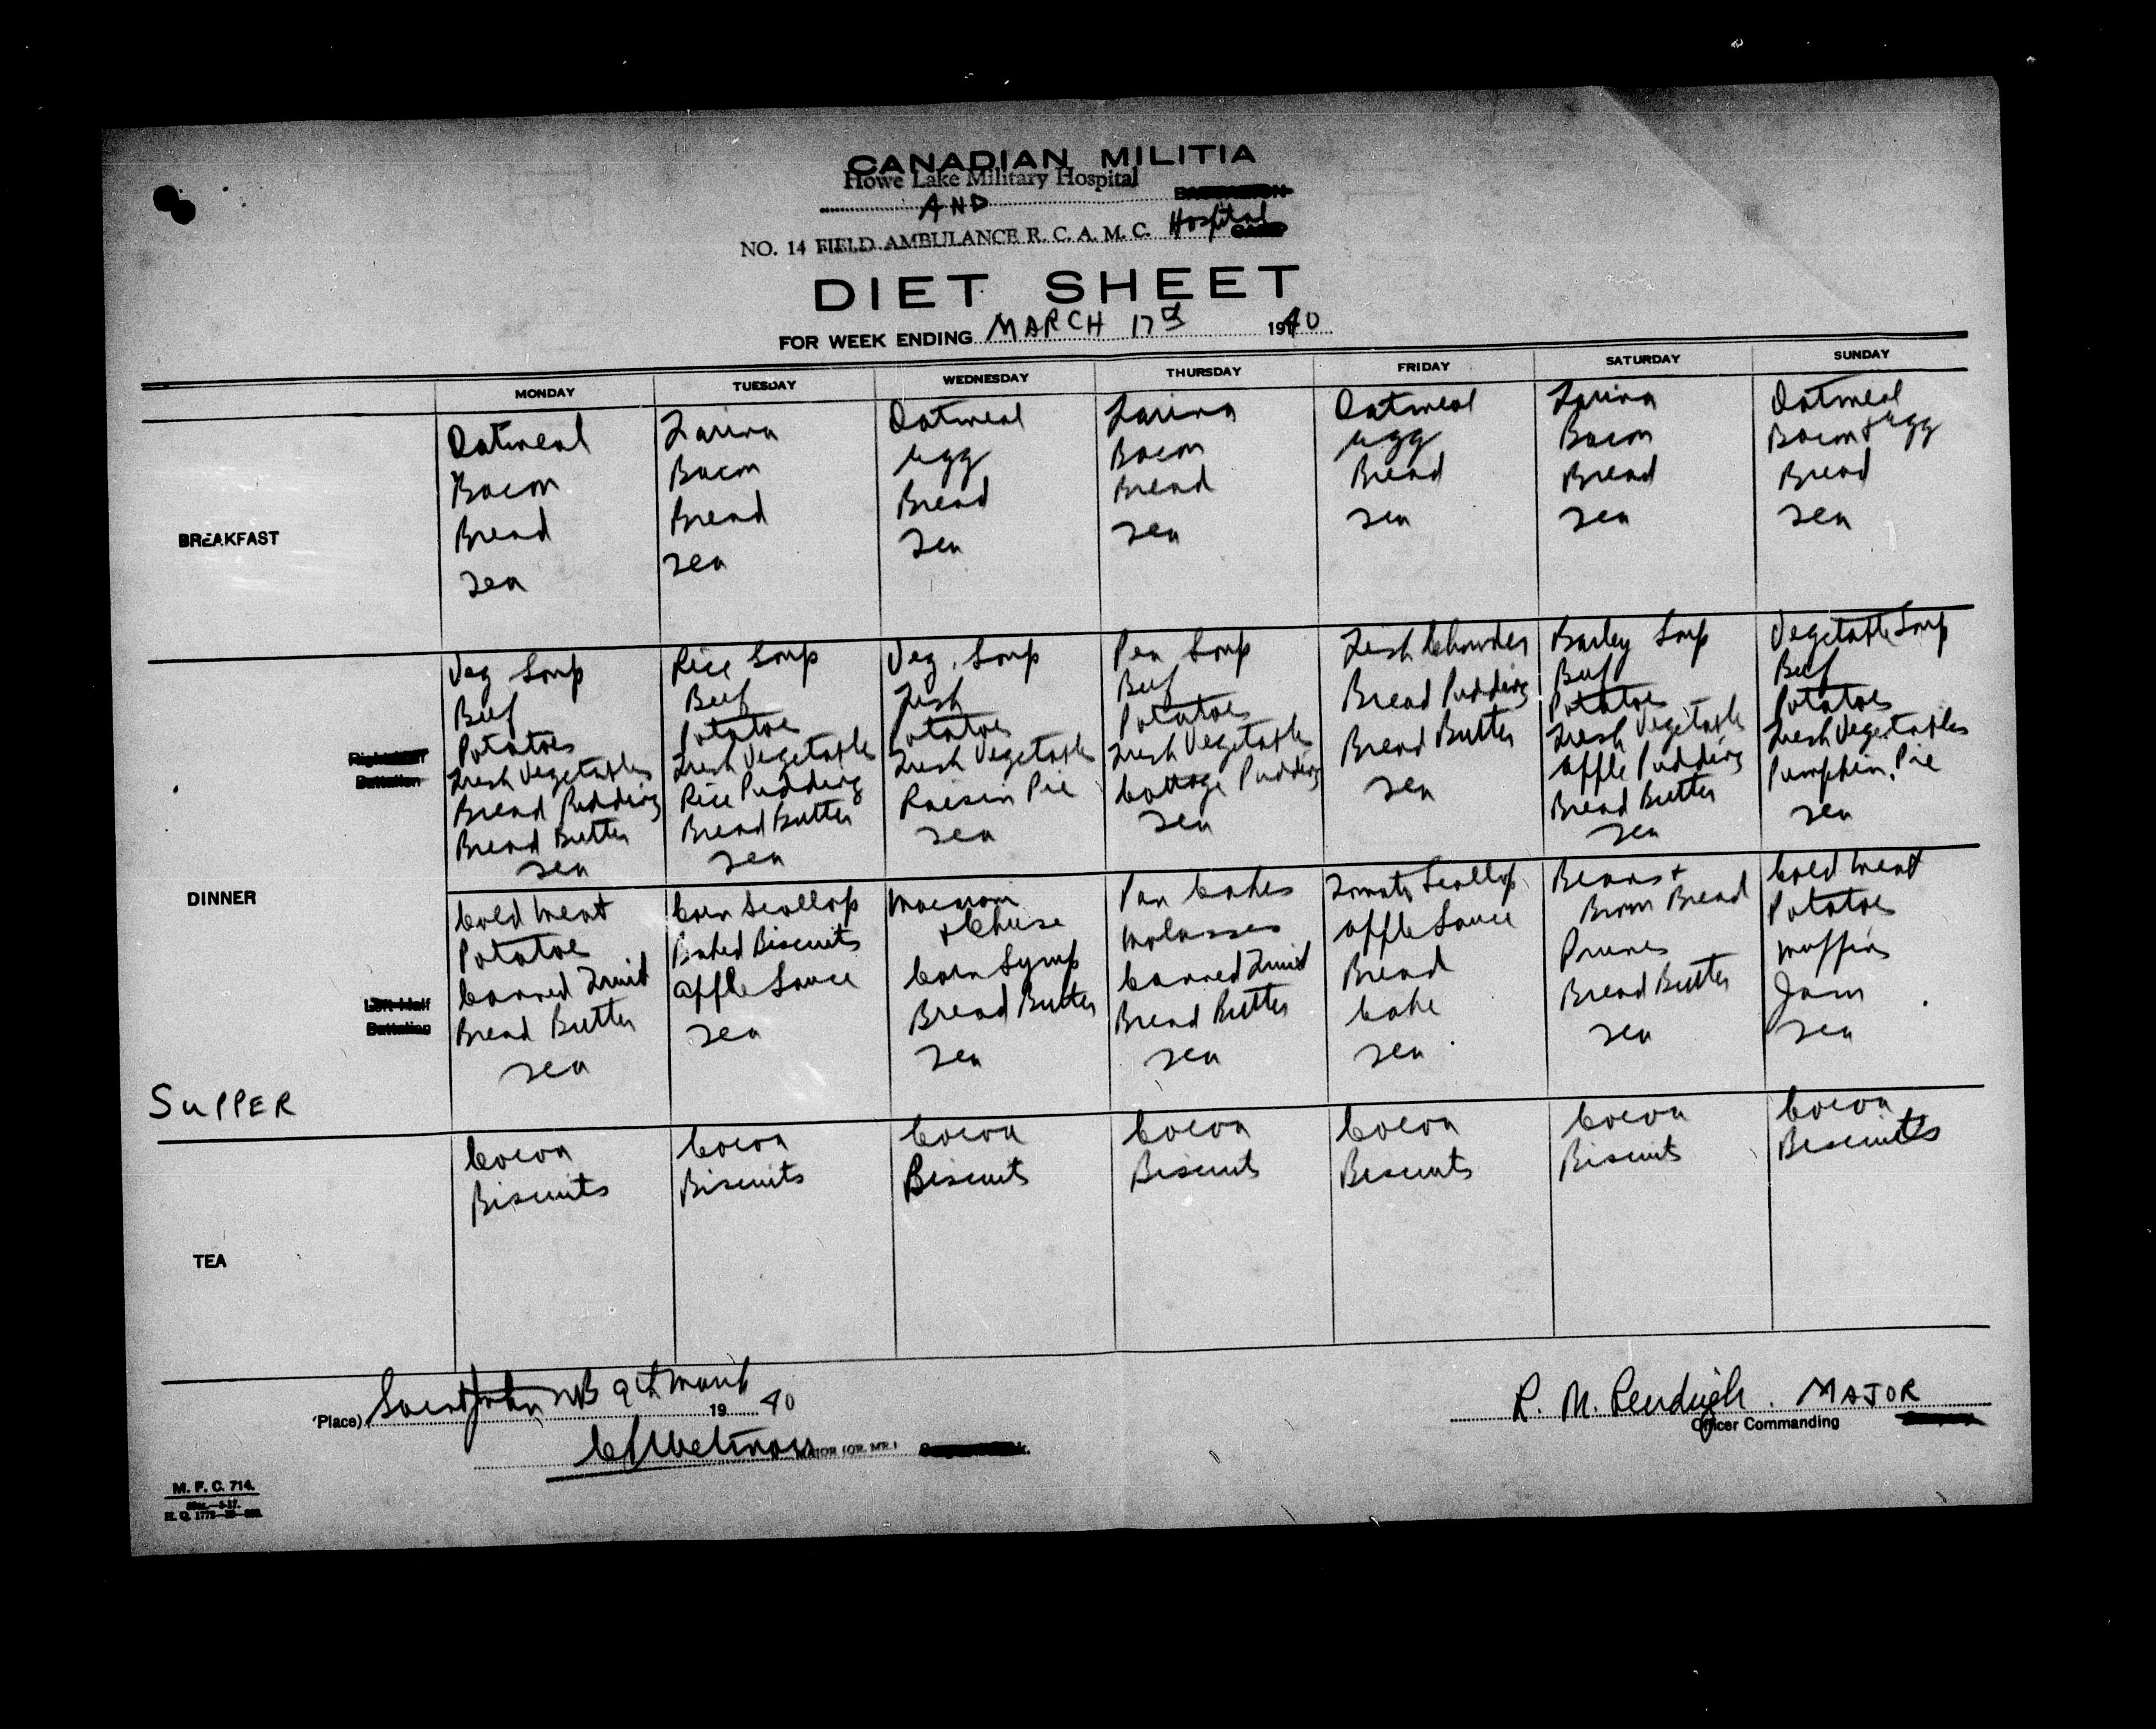 CANADIAN MILITIA
Howe Lake Military Hospital
AND BATTALION
NO. 14 FIELD AMBULANCE R. C. A. M. C. Hospital CAMP
DIET SHEET
FOR WEEK ENDING MARCH 17th 1940
MONDAY TUESDAY WEDNESDAY THURSDAY FRIDAY SATURDAY SUNDAY
BREAKFAST
Oatmeal
Bacon
Bread
Tea
Farina
Bacon
Bread
Tea
Oatmeal
Egg
Bread
Tea
Farina
Bacon
Bread
Tea
Oatmeal
Egg
Bread
Tea
Farina
Bacon
Bread
Tea
Oatmeal
Bacon & Egg
Bread
Tea
DINNER
Right Half
Battalion
Veg Soup
Beef
Potatoes
Fresh Vegetables
Bread Pudding
Bread Butter
Tea
Rice Soup
Beef
Potatoe
Fresh Vegetable
Rice Pudding
Bread Butter
Tea
Veg. Soup
Fish
Potatoes
Fresh Vegetable
Raisin Pie
Tea
Pea Soup
Beef
Potatoes
Fresh Vegetables
Cottage Pudding
Tea
Fish Chowder
Bread Pudding
Bread Butter
Tea
Barley Soup
Beef
Potatoes
Fresh Vegetable
Apple Pudding
Bread Butter
Tea
Vegetable Soup
Beef
Potatoes
Fresh Vegetables
Pumpkin Pie
Tea
Left Half
Battalion
SUPPER
Cold Meat
Potatoe
Canned Fruit
Bread Butter
Tea
Corn Scallop
Baked Biscuits
Apple Sauce
Tea
Macaroni
& Cheese
Corn Syrup
Bread Butter
Tea
Pan Cakes
Molasses
Canned Fruit
Bread Butter
Tea
Tomato Scallop
Apple Sauce
Bread
Cake
Tea
Beans +
Brown Bread
Prunes
Bread Butter
Tea
Cold Meat
Potatoes
Muffins
Jam
Tea
TEA
Cocoa
Biscuits
Cocoa
Biscuits
Cocoa
Biscuits
Cocoa
Biscuits
Cocoa
Biscuits
Cocoa
Biscuits
Cocoa
Biscuits
(Place) Saint John NB 9th March 1940
R. M. Pendrigh. MAJOR
Officer Commanding
MAJOR (OR. MR.)
M. F. C. 714.